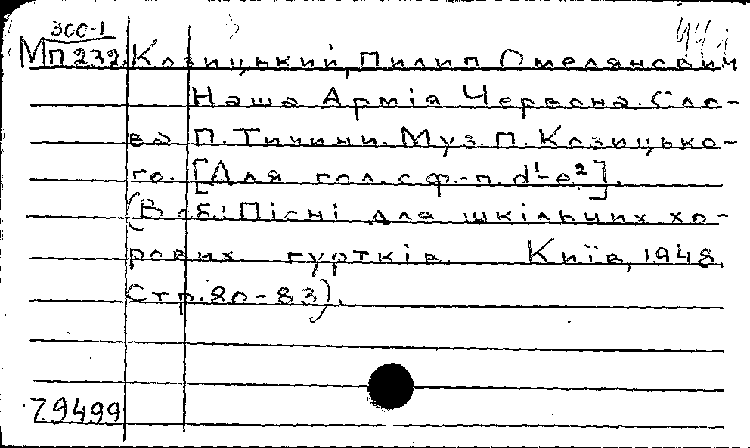 3CC-1
МП232. Козицький, Пилип Омелянович
Наша Армія Червона. Сло-
ва П. Тичини. Муз. П. Козицько-
го. [Для гол. с ф.-п. d¹-e²].
(В зб.: Пісні для шкільних хо-
рових гуртків. Київ, 1948.
Стр. 80-83).
79499